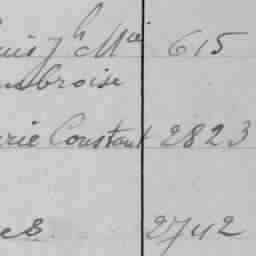 Mie 615
mbroise
rie Constant 2823
es 2742